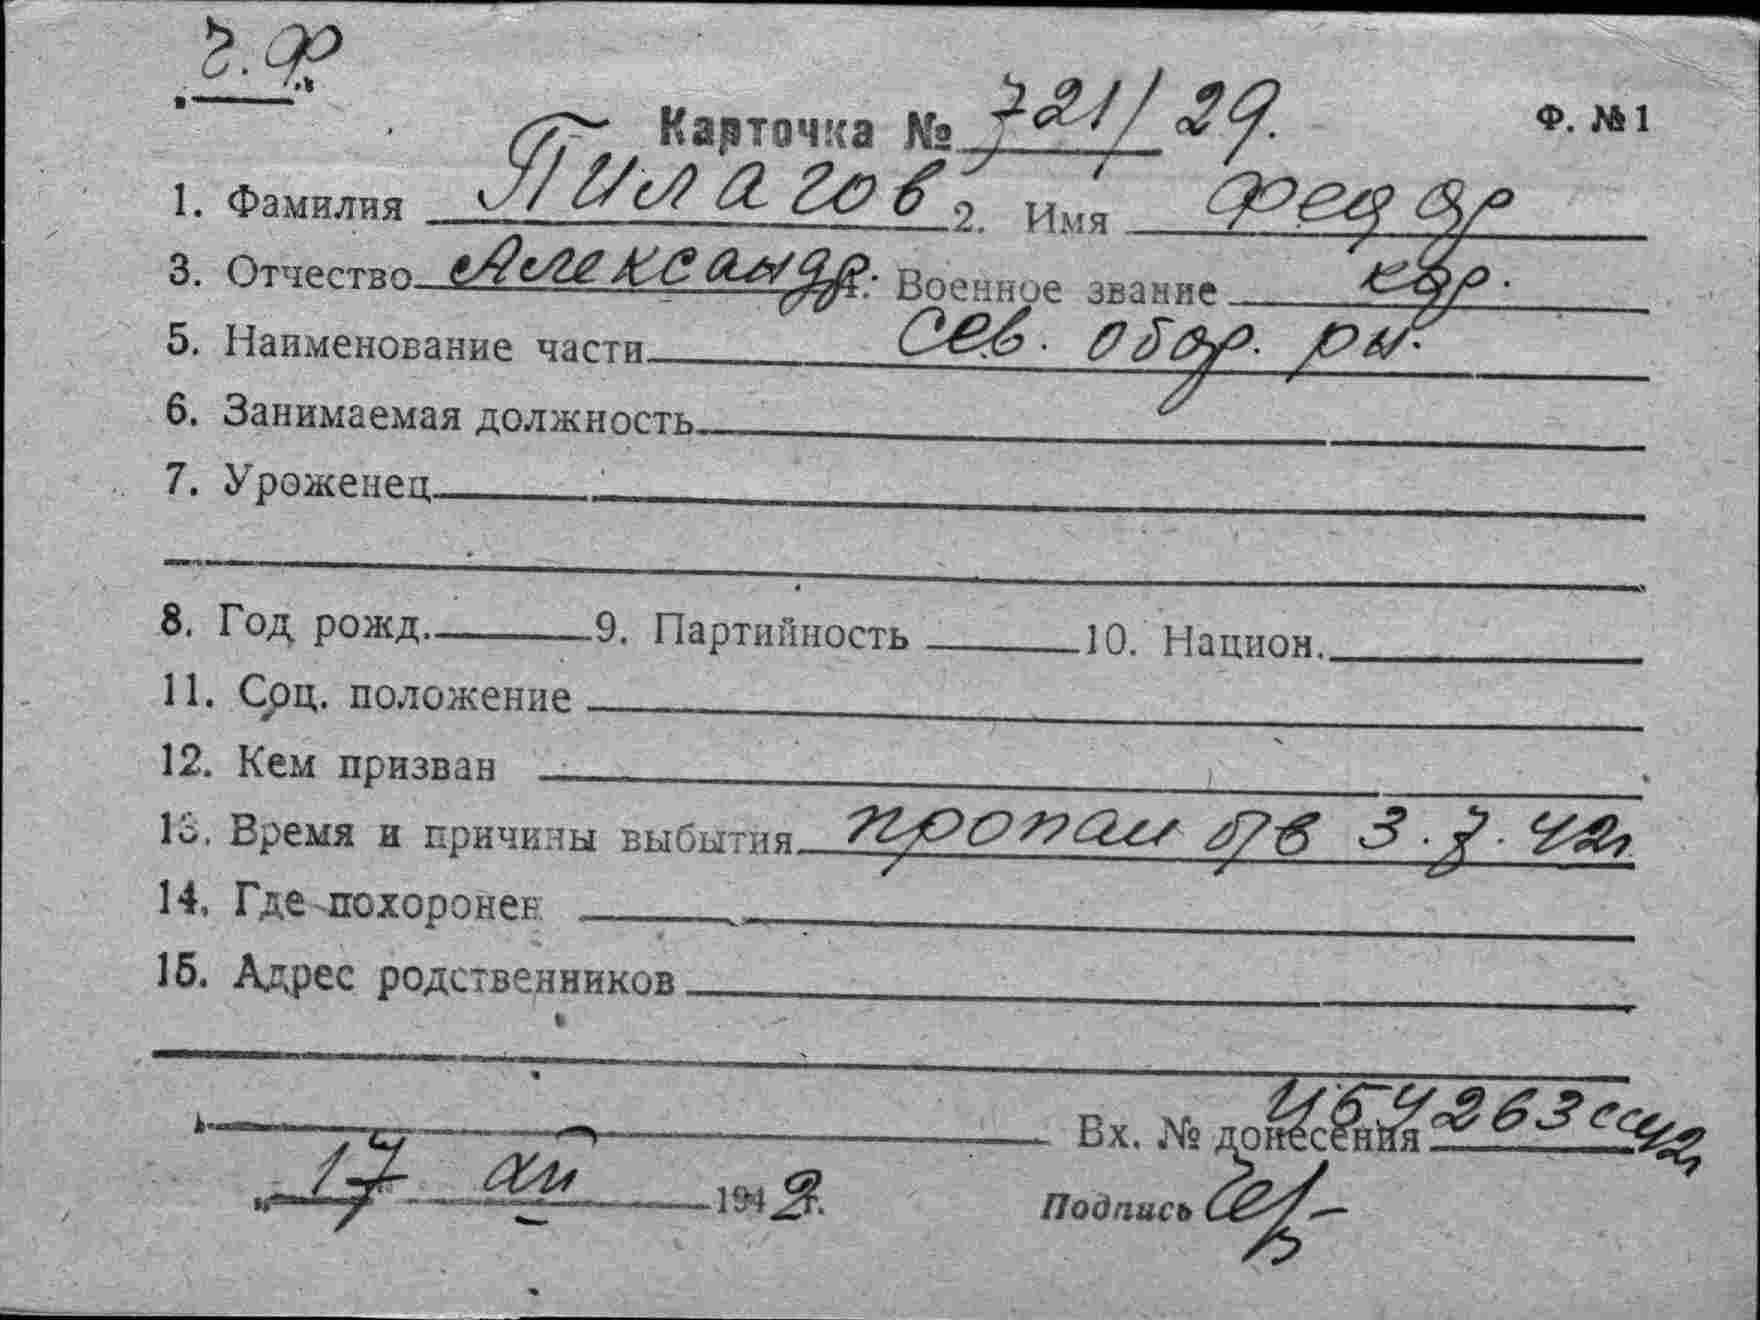 Ч.Ф
Карточка № 721/29. Ф. №1
1. Фамилия Пилагов 2. Имя Федор
3. Отчество Александр. 4. Военное звание кдр.
5. Наименование части Сев. обор. р-н.
6. Занимаемая должность
7. Уроженец
8. Год рожд. 9. Партийность 10. Национ.
11. Соц. положение
12. Кем призван
13. Время и причины выбытия пропал б/в 3.7.42г
14. Где похоронен
15. Адрес родственников
Вх. № донесения 263
17 1942г.
Подпись